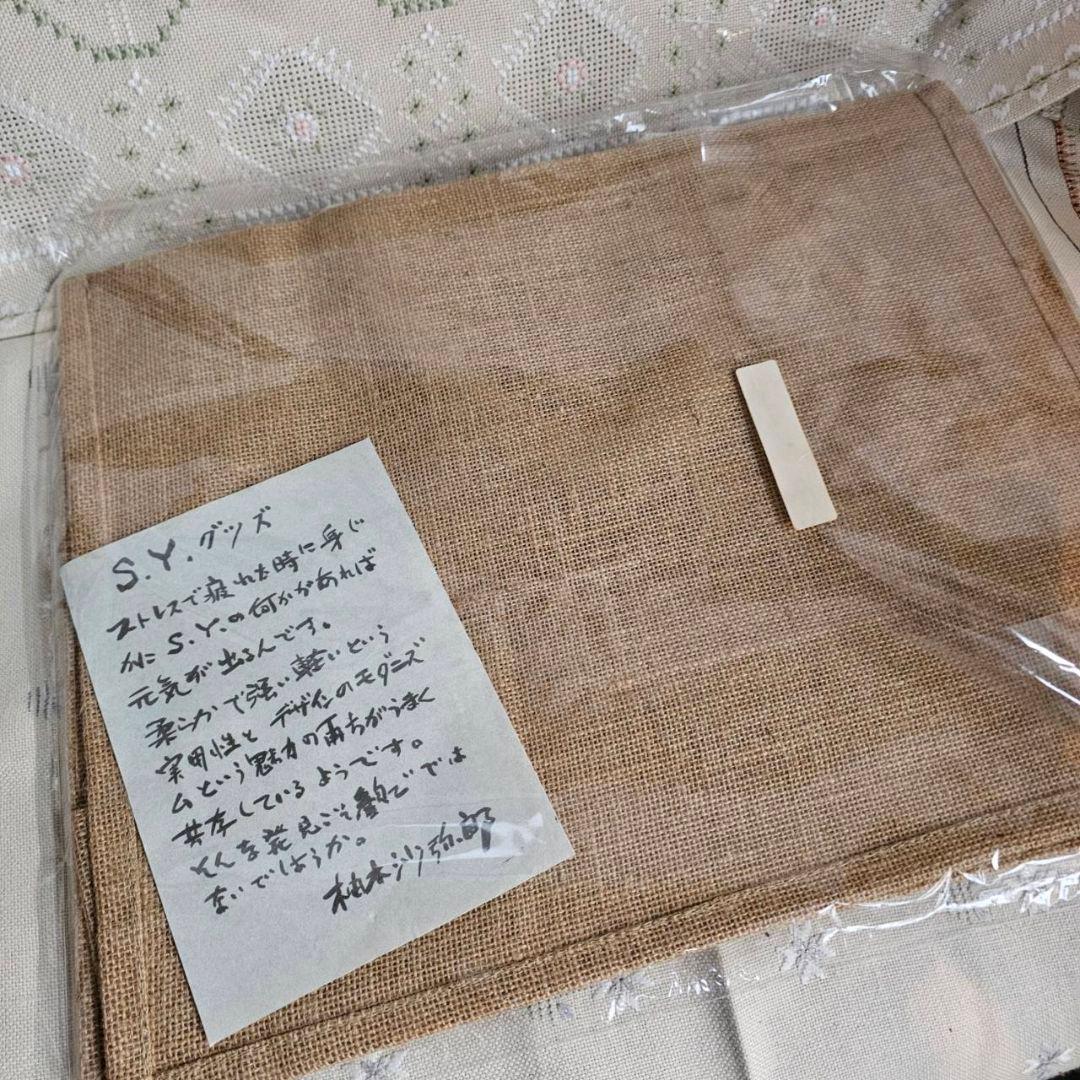 S.Y.グッズ
ストレスで疲れた時に身ぢ
かに S.Y.の何かがあれば
元気が出るんです。
柔らかで強い軽いという
実用性と デザインのモダニズ
ムという魅力の両方がうまく
共存しているようです。
そんな発見こそ夢では
ないでしょうか。
柚木沙弥郎